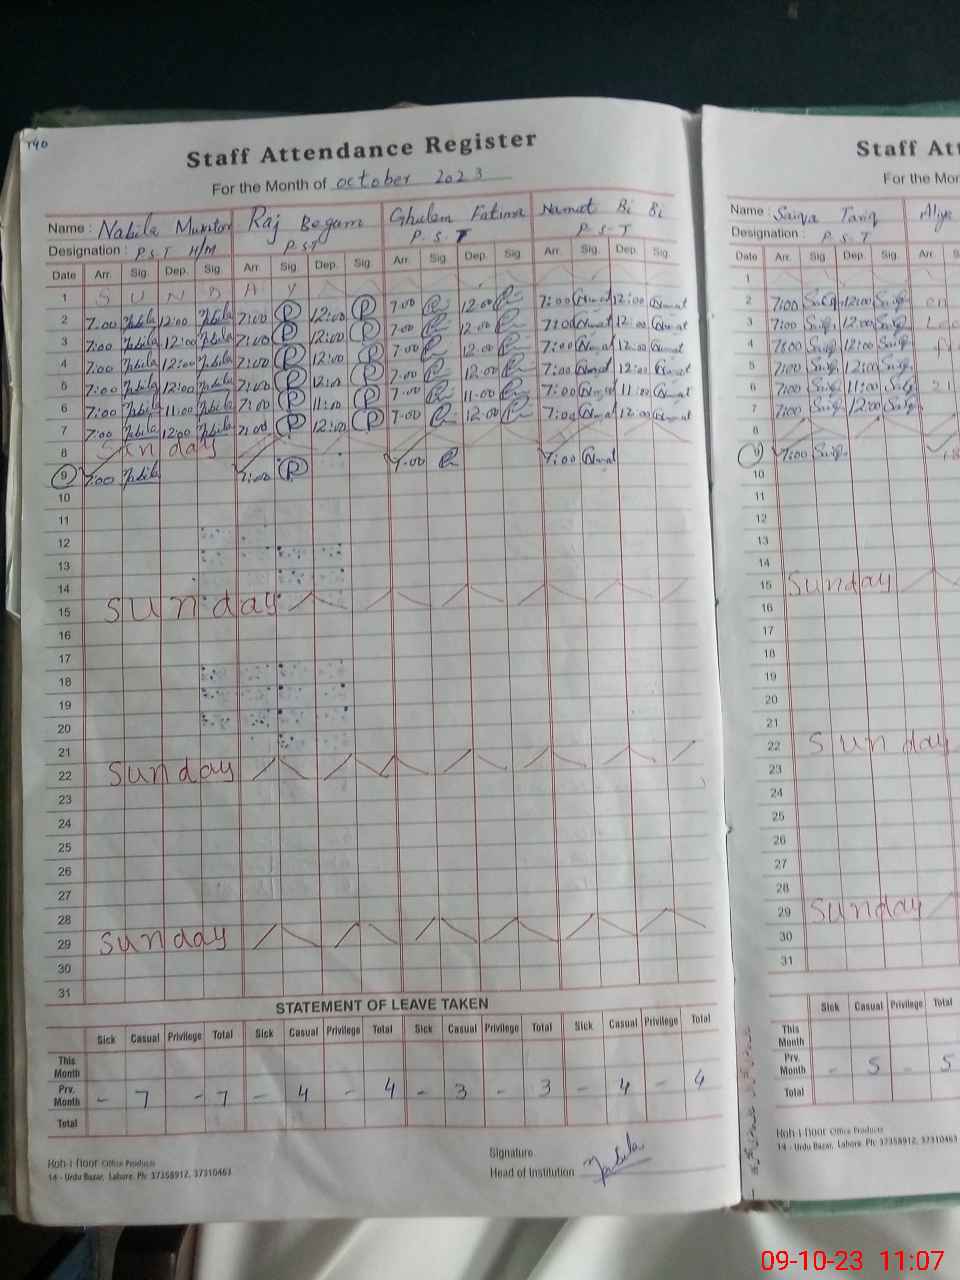 190
Staff Attendance Register
For the Month of october 2023
Name : Nabila Mumtaz Raj Begam Ghulam Fatima Namat Bi Bi
Designation : P.S.T H/M P.ST P.S.T P.S.T
Date Arr. Sig. Dep. Sig. Arr. Sig. Dep. Sig. Arr. Sig. Dep. Sig. Arr. Sig. Dep. Sig.
1 S U N D A Y
2 7:00 Nabila 12:00 Nabila 7:00 P 12:00 P 7:00 12:00 7:00 Namat 12:00 Namat
3 7:00 Nabila 12:00 Nabila 7:00 P 12:00 P 7:00 12:00 7:00 Namat 12:00 Namat
4 7:00 Nabila 12:00 Nabila 7:00 P 12:00 P 7:00 12:00 7:00 Namat 12:00 Namat
5 7:00 Nabila 12:00 Nabila 7:00 P 12:00 P 7:00 12:00 7:00 Namat 12:00 Namat
6 7:00 Nabila 11:00 Nabila 7:00 P 11:00 P 7:00 11:00 7:00 Namat 11:00 Namat
7 7:00 Nabila 12:00 Nabila 7:00 P 12:00 P 7:00 12:00 7:00 Namat 12:00 Namat
8 Sunday
9 7:00 Nabila 7:00 P 7:00 7:00 Namat
10
11
12
13
14
15 Sunday
16
17
18
19
20
21
22 Sunday
23
24
25
26
27
28
29 Sunday
30
31
STATEMENT OF LEAVE TAKEN
Sick Casual Privilege Total Sick Casual Privilege Total Sick Casual Privilege Total Sick Casual Privilege Total
This Month
Prv. Month - 7 - 7 - 4 - 4 - 3 - 3 - 4 - 4
Total
Signature
Head of Institution Nabila
Koh-i-Noor Office Products
14 - Urdu Bazar, Lahore. Ph: 37358912, 37310463
Staff Att
For the Mon
Name : Saiqa Tariq Aliya
Designation : P.S.T
Date Arr. Sig. Dep. Sig. Arr.
1
2 7:00 Saiq. 12:00 Saiq. on
3 7:00 Saiq. 12:00 Saiq.
4 7:00 Saiq. 12:00 Saiq.
5 7:00 Saiq. 12:00 Saiq.
6 7:00 Saiq. 11:00 Saiq.
7 7:00 Saiq. 12:00 Saiq.
8
9 7:00 Saiq.
10
11
12
13
14
15 Sunday
16
17
18
19
20
21
22 Sunday
23
24
25
26
27
28
29 Sunday
30
31
Sick Casual Privilege Total
This Month
Prv. Month - 5 - 5
Total
Koh-i-Noor Office Products
14 - Urdu Bazar, Lahore. Ph: 37358912, 37310463
09-10-23 11:07